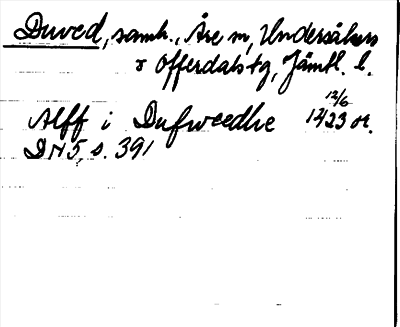 Duved, samh., Åre sn, Undersåkers
o Offerdals tg, Jämtl. l.
12/6
Alff i Dufweedhe 1423 or.
DN 5, s. 391